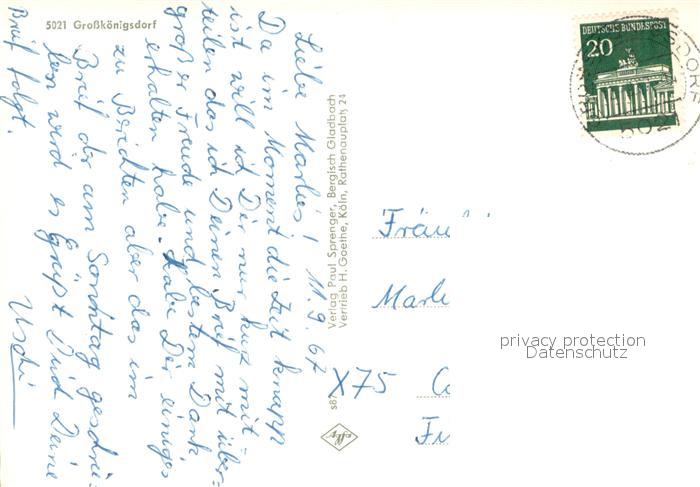 5021 Großkönigsdorf
Liebe Marlies! 11.9.67
Da im Moment die Zeit knapp
ist will ich Dir nur kurz mit-
teilen das ich Deinen Brief mit über-
großer Freude und bestem Dank
erhalten habe. Habe Dir einiges
zu Berichten aber das im
Brief der am Sonntag geschrie-
ben wird es Grüßt Dich Deine
Brief folgt. Uschi
Verlag Paul Sprenger, Bergisch Gladbach
Vertrieb H. Goethe, Köln, Rathenauplatz 24
s87
Agfa
DEUTSCHE BUNDESPOST
20
5021
Fräul
Marli
X75
privacy protection
Datenschutz